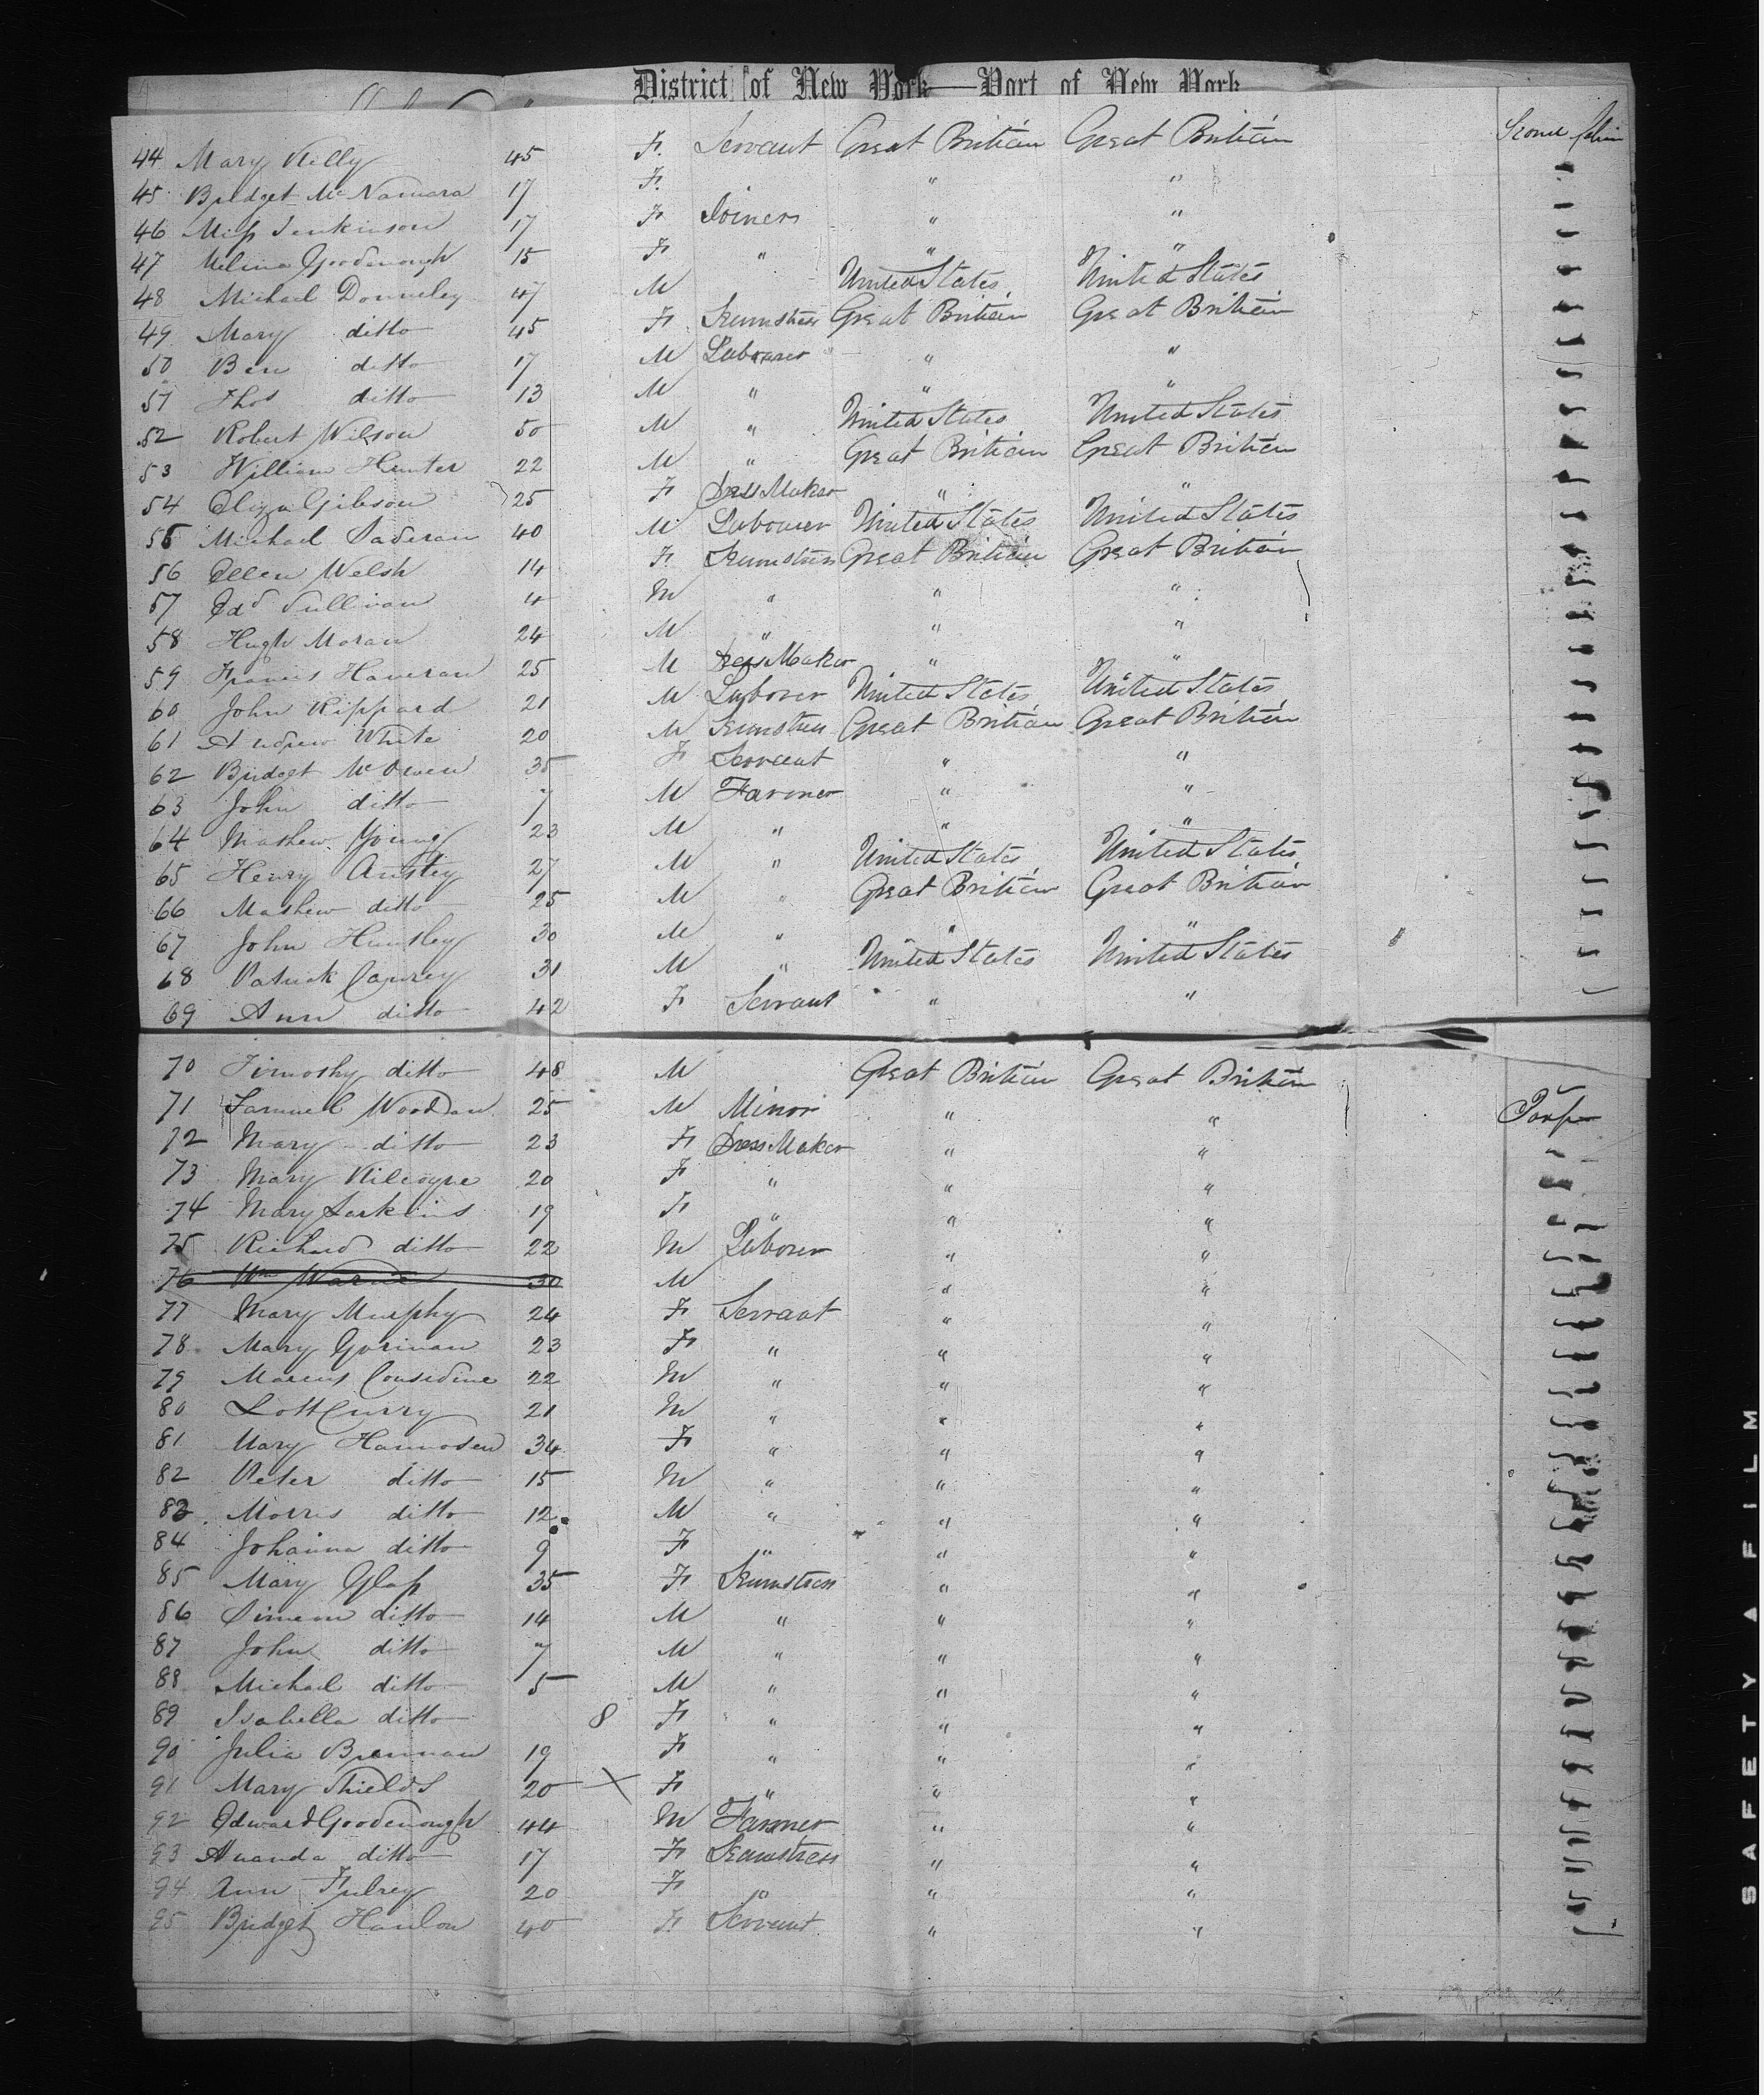 District of New York—Port of New York
44 Mary Killy 45 F. Servant Great Britian Great Britian
45 Bridget McNamara 17 F. " "
46 Miss Jenkinson 17 F Joiners " "
47 Melina Goodenough 15 F " " "
48 Michael Donneley 47 M United States United States
49 Mary ditto 45 F Seumstress Great Britian Great Britian
50 Ben ditto 17 M Labourer " "
51 Thos ditto 13 M " " "
52 Robert Wilson 50 M " United States United States
53 William Hunter 22 M " Great Britian Great Britian
54 Eliza Gibson 25 F Dress Maker " "
55 Michael 40 M Labourer United States United States
56 Ellen Welsh 14 F Seumstress Great Britian Great Britian
57 Edd Sullivan 4 M " " "
58 Hugh Moran 24 M " " "
59 Francis Haveran 25 M Dress Maker " "
60 John Rippard 21 M Laborer United States United States
61 Andrew White 20 M Seumstress Great Britian Great Britian
62 Bridget McOwen 35 F Servant " "
63 John ditto 7 M Farmer " "
64 Mathew Young 23 M " " "
65 Henry Anstey 27 M " United States United States
66 Mathew ditto 25 M " Great Britian Great Britian
67 John Hunsley 30 M " " "
68 Patrick 31 M " United States United States
69 Ann ditto 42 F Servant " "
70 Timothy ditto 48 M Great Britian Great Britian
71 Samuel Wooddan 25 M Minor " "
72 Mary ditto 23 F Dress Maker " "
73 Mary Kilcoyne 20 F " " "
74 Mary Larkins 19 F " " "
75 Richard ditto 22 M Laborer " "
76 Wm 30 M " "
77 Mary Murphy 24 F Servant " "
78 Mary Gorivan 23 F " " "
79 Marcus Considine 22 M " " "
80 Lott Curry 21 M " " "
81 Mary 34 F " " "
82 Peter ditto 15 M " " "
83 Morris ditto 12 M " " "
84 Johanna ditto 9 F " " "
85 Mary Glass 35 F Seumstress " "
86 Simeon ditto 14 M " " "
87 John ditto 7 M " " "
88 Michael ditto 5 M " " "
89 Isabella ditto 8 F " " "
90 Julia Brennan 19 F " " "
91 Mary Shields 20 X F " " "
92 Edward Goodenough 44 M Farmer " "
93 Amanda ditto 17 F Seamstress " "
94 Ann 20 F " " "
95 Bridget Hanlon 40 F. Servant " "
SAFETY A FILM